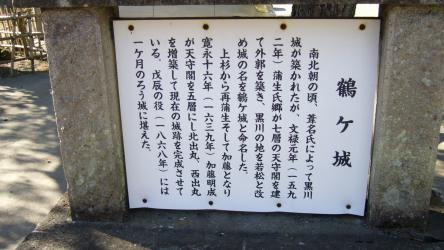 鶴ケ城
南北朝の頃、葦名氏によって黒川
城が築かれたが、文禄元年(一五九
二年)蒲生氏郷が七層の天守閣を建
て外郭を築き、黒川の地を若松と改
め城の名を鶴ケ城と命名した。
上杉から再蒲生そして加藤となり
寛永十六年(一六三九年)加藤明成
が天守閣を五層にし北出丸、西出丸
を増築して現在の城跡を完成させて
いる。戊辰の役(一八六八年)には
一ケ月のろう城に堪えた。